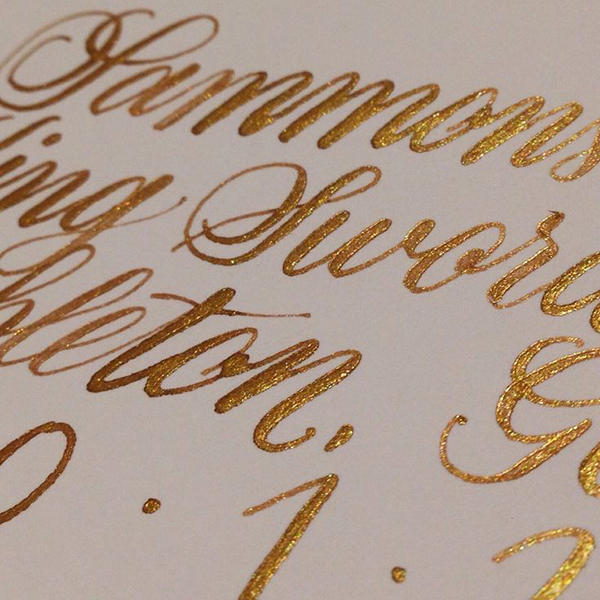 Sammons
ing Sword
bleton, G
0 · 1 · 2